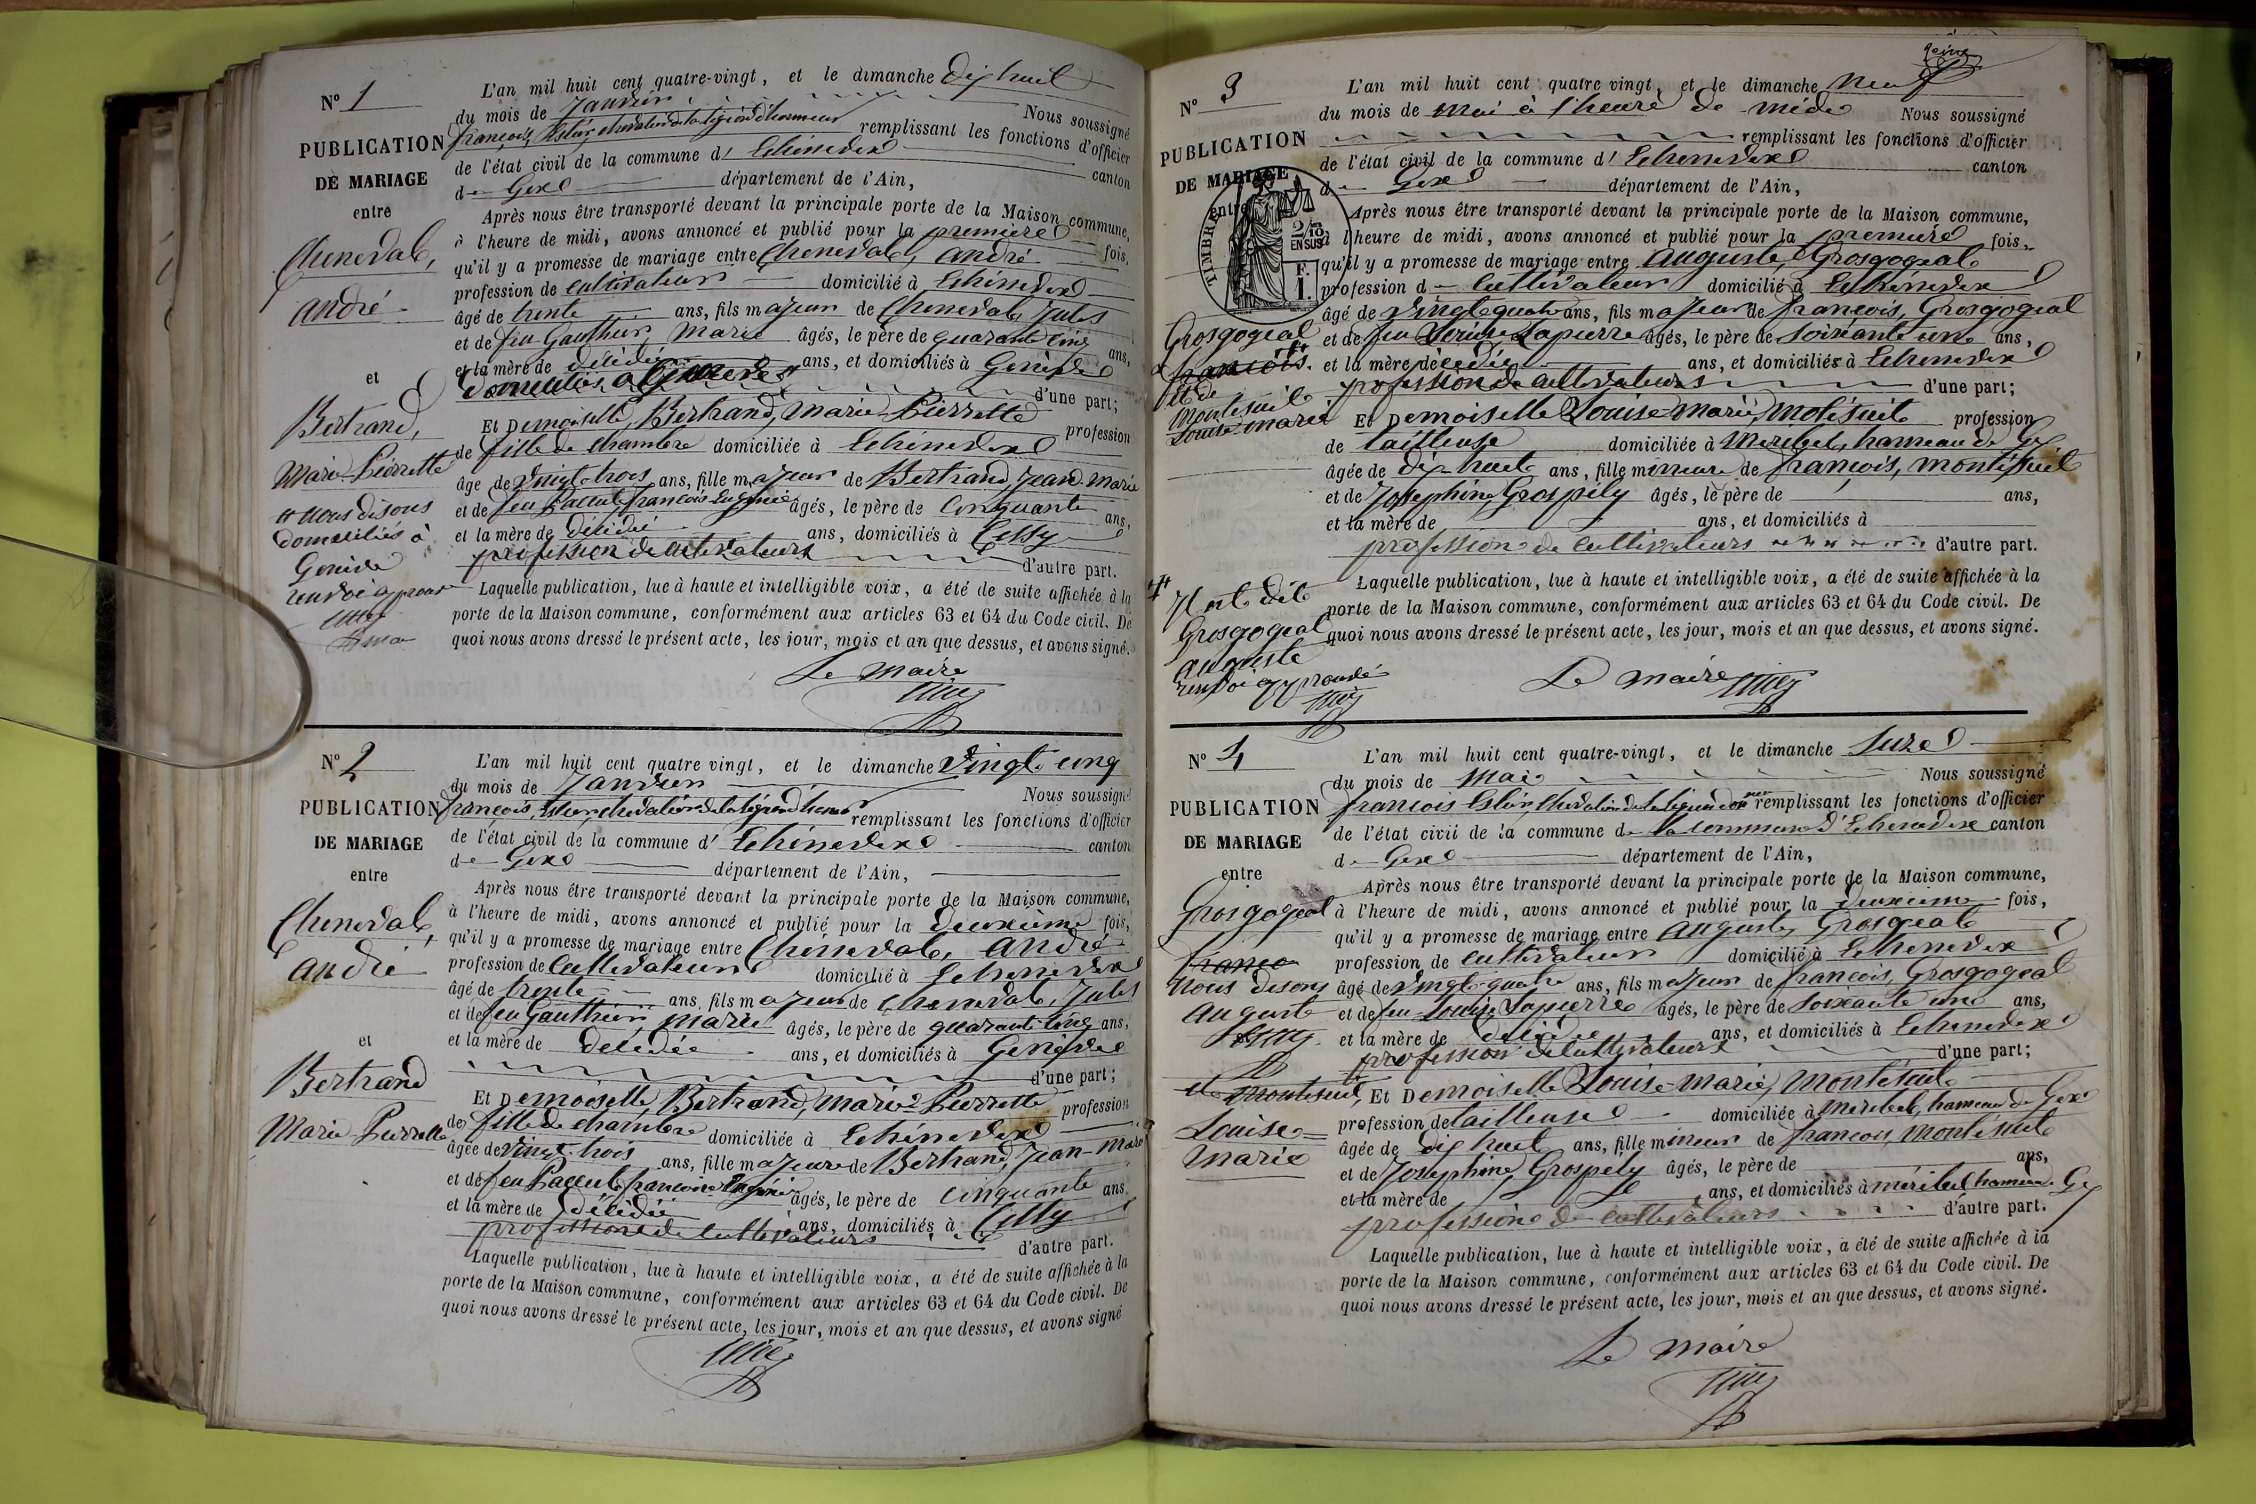 N° 1
PUBLICATION
DE MARIAGE
entre
Cheneval,
André
et
Bertrand,
Marie Pierrette
# nous disons
domiciliés à
Genève
renvoi approuvé
L'an mil huit cent quatre-vingt, et le dimanche dix huit
du mois de Janvier Nous soussigné
françois, chevalier de la légion d'honneur remplissant les fonctions d'officier
de l'état civil de la commune d' Echenevex canton
de Gex département de l'Ain,
Après nous être transporté devant la principale porte de la Maison commune,
à l'heure de midi, avons annoncé et publié pour la première fois,
qu'il y a promesse de mariage entre Cheneval, andré
profession de cultivateur domicilié à Echenevex
âgé de trente ans, fils majeur de Cheneval, Jules
et de feu Gauthier, Marie âgés, le père de quarante cinq ans,
et la mère de décédée ans, et domiciliés à Genève
domiciliés à
d'une part;
Et Demoiselle, Bertrand, Marie Pierrette profession
de fille de chambre domiciliée à Echenevex
âge de vingt-trois ans, fille majeur de Bertrand, Jean-Marie
et de feu françoise Eugénie âgés, le père de cinquante ans,
et la mère de décédée ans, domiciliés à Cessy
profession de cultivateurs d'autre part.
Laquelle publication, lue à haute et intelligible voix, a été de suite affichée à la
porte de la Maison commune, conformément aux articles 63 et 64 du Code civil. De
quoi nous avons dressé le présent acte, les jour, mois et an que dessus, et avons signé.
Le maire
N° 2
PUBLICATION
DE MARIAGE
entre
Cheneval,
André
et
Bertrand
Marie Pierrette
L'an mil huit cent quatre vingt, et le dimanche vingt-cinq
du mois de Janvier Nous soussigné
françois, chevalier de la légion d'honneur remplissant les fonctions d'officier
de l'état civil de la commune d' Echenevex canton
de Gex département de l'Ain,
Après nous être transporté devant la principale porte de la Maison commune,
à l'heure de midi, avons annoncé et publié pour la deuxième fois,
qu'il y a promesse de mariage entre Cheneval, André
profession de Cultivateur domicilié à Echenevex
âgé de trente ans, fils majeur de Cheneval, Jules
et de feu Gauthier, Marie âgés, le père de quarante cinq ans,
et la mère de décédée ans, et domiciliés à Genève
d'une part;
Et Demoiselle, Bertrand, Marie Pierrette profession
de fille de chambre domiciliée à Echenevex
âgée de vingt-trois ans, fille majeure de Bertrand, Jean-Marie
et de feu françoise Eugénie âgés, le père de cinquante ans
et la mère de décédée ans, domiciliés à Cessy
profession de cultivateurs d'autre part.
Laquelle publication, lue à haute et intelligible voix, a été de suite affichée à la
porte de la Maison commune, conformément aux articles 63 et 64 du Code civil. De
quoi nous avons dressé le présent acte, les jour, mois et an que dessus, et avons signé
N° 3
PUBLICATION
DE MARIAGE
entre
TIMBRE
2/10
EN SUS
F.
1.
Grosgogeal
françois.
et de
Montesuit
Louise-Marie
L'an mil huit cent quatre vingt, et le dimanche neuf
du mois de mai à l'heure de midi Nous soussigné
remplissant les fonctions d'officier
de l'état civil de la commune d' Echenevex canton
de Gex département de l'Ain,
Après nous être transporté devant la principale porte de la Maison commune,
à l'heure de midi, avons annoncé et publié pour la première fois,
qu'il y a promesse de mariage entre Auguste, Grosgogeal
profession de Cultivateur domicilié à Echenevex
âgé de vingt quatre ans, fils majeur de françois, Grosgogeal
et de feu Louise Lapierre âgés, le père de soixante une ans,
et la mère décédée ans, et domiciliés à Echenevex
profession de cultivateurs d'une part;
Et Demoiselle Louise-Marie, Montésuit profession
de tailleuse domiciliée à Meribel, hameau de Gex
âgée de dix-huit ans, fille mineure de françois, Montésuit
et de Josephine, Grospély âgés, le père de ans,
et la mère de ans, et domiciliés à
profession de cultivateurs d'autre part.
Laquelle publication, lue à haute et intelligible voix, a été de suite affichée à la
porte de la Maison commune, conformément aux articles 63 et 64 du Code civil. De
quoi nous avons dressé le présent acte, les jour, mois et an que dessus, et avons signé.
Grosgogeal
Auguste
renvoi approuvé
Le maire
N° 4
PUBLICATION
DE MARIAGE
entre
Grosgogeal
Nous disons
Auguste
et Montesuit,
Louise=
Marie
L'an mil huit cent quatre-vingt, et le dimanche seize
du mois de Mai Nous soussigné
françois chevalier de la légion d'honneur remplissant les fonctions d'officier
de l'état civil de la commune de la commune d'Echenevex canton
de Gex département de l'Ain,
Après nous être transporté devant la principale porte de la Maison commune,
à l'heure de midi, avons annoncé et publié pour la deuxième fois,
qu'il y a promesse de mariage entre Auguste, Grosgeal
profession de cultivateur domicilié à Echenevex
âgé de vingt-quatre ans, fils majeur de françois, Grosgogeal
et de feu Louise Lapierre âgés, le père de soixante une ans,
et la mère de décédée ans, et domiciliés à Echenevex
profession de cultivateurs d'une part;
Et Demoiselle Louise-Marie, Montésuit
profession de tailleuse domiciliée à Meribel, hameau de Gex
âgée de dix huit ans, fille mineur de françois, Montésuit
et de Josephine, Grospély âgés, le père de ans,
et la mère de ans, et domiciliés à Méribel hameau de Gex
profession de cultivateurs d'autre part.
Laquelle publication, lue à haute et intelligible voix, a été de suite affichée à la
porte de la Maison commune, conformément aux articles 63 et 64 du Code civil. De
quoi nous avons dressé le présent acte, les jour, mois et an que dessus, et avons signé.
Le maire